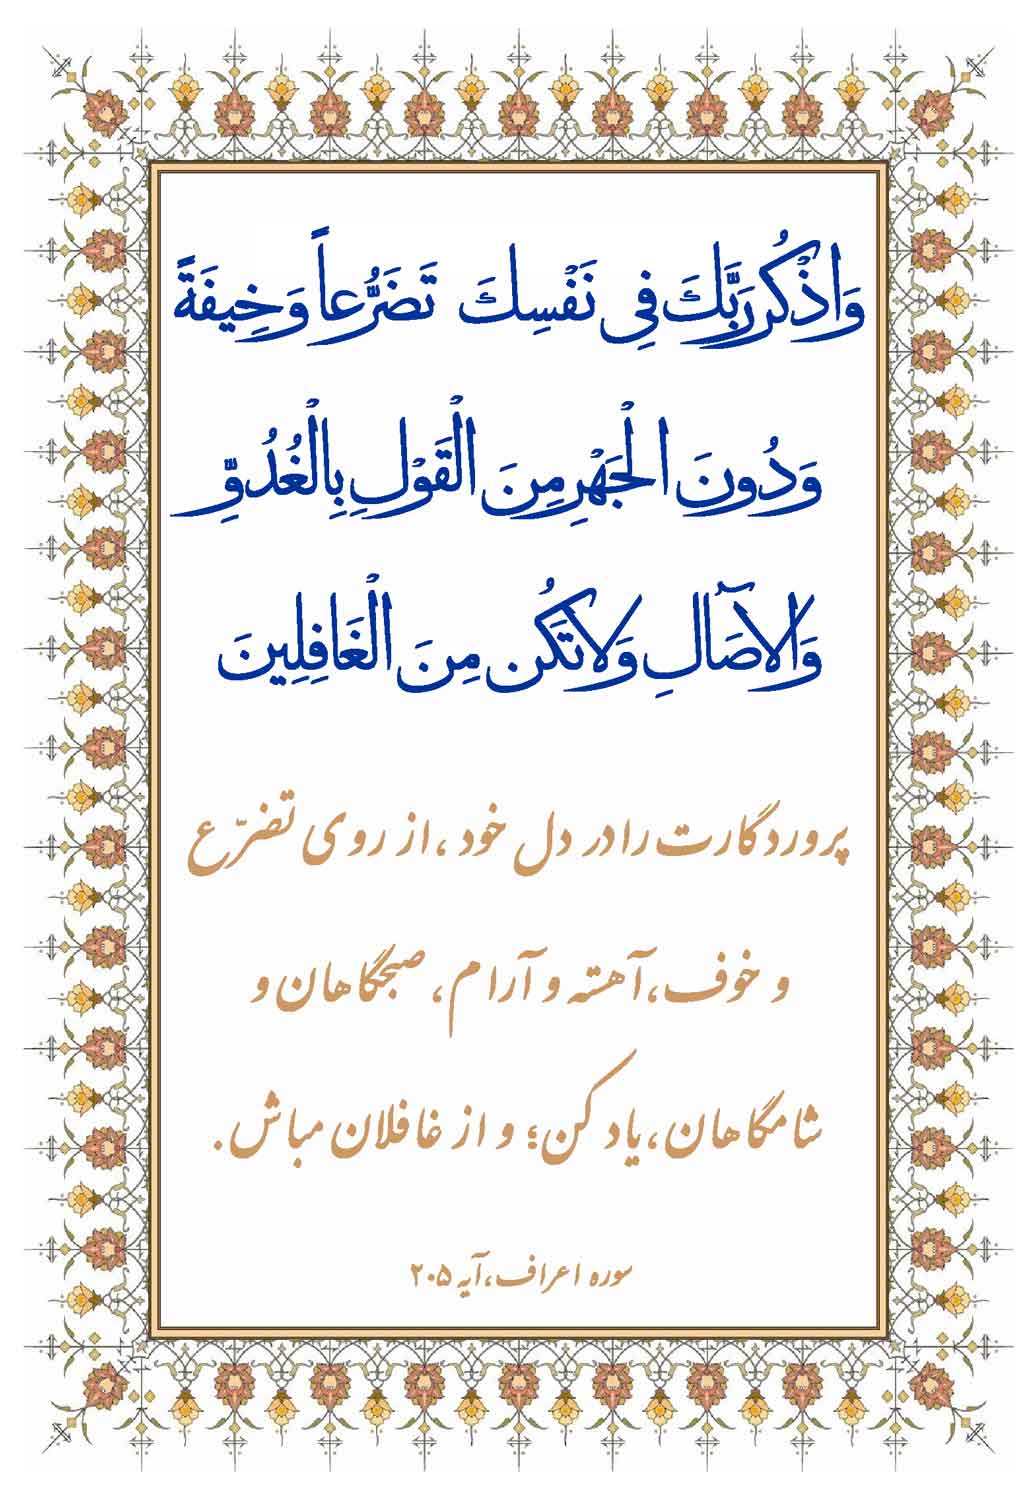 وَاذْكُر رَبَّكَ فِي نَفْسِكَ تَضَرُّعاً وَخِيفَةً
وَدُونَ الْجَهْرِ مِنَ الْقَوْلِ بِالْغُدُوِّ
وَالْآصَالِ وَلَا تَكُن مِنَ الْغَافِلِينَ
پروردگارت را در دل خود، از روی تضرّع
و خوف، آهسته و آرام، صبحگاهان و
شامگاهان، یاد کن؛ و از غافلان مباش.
سوره اعراف، آیه ۲۰۵